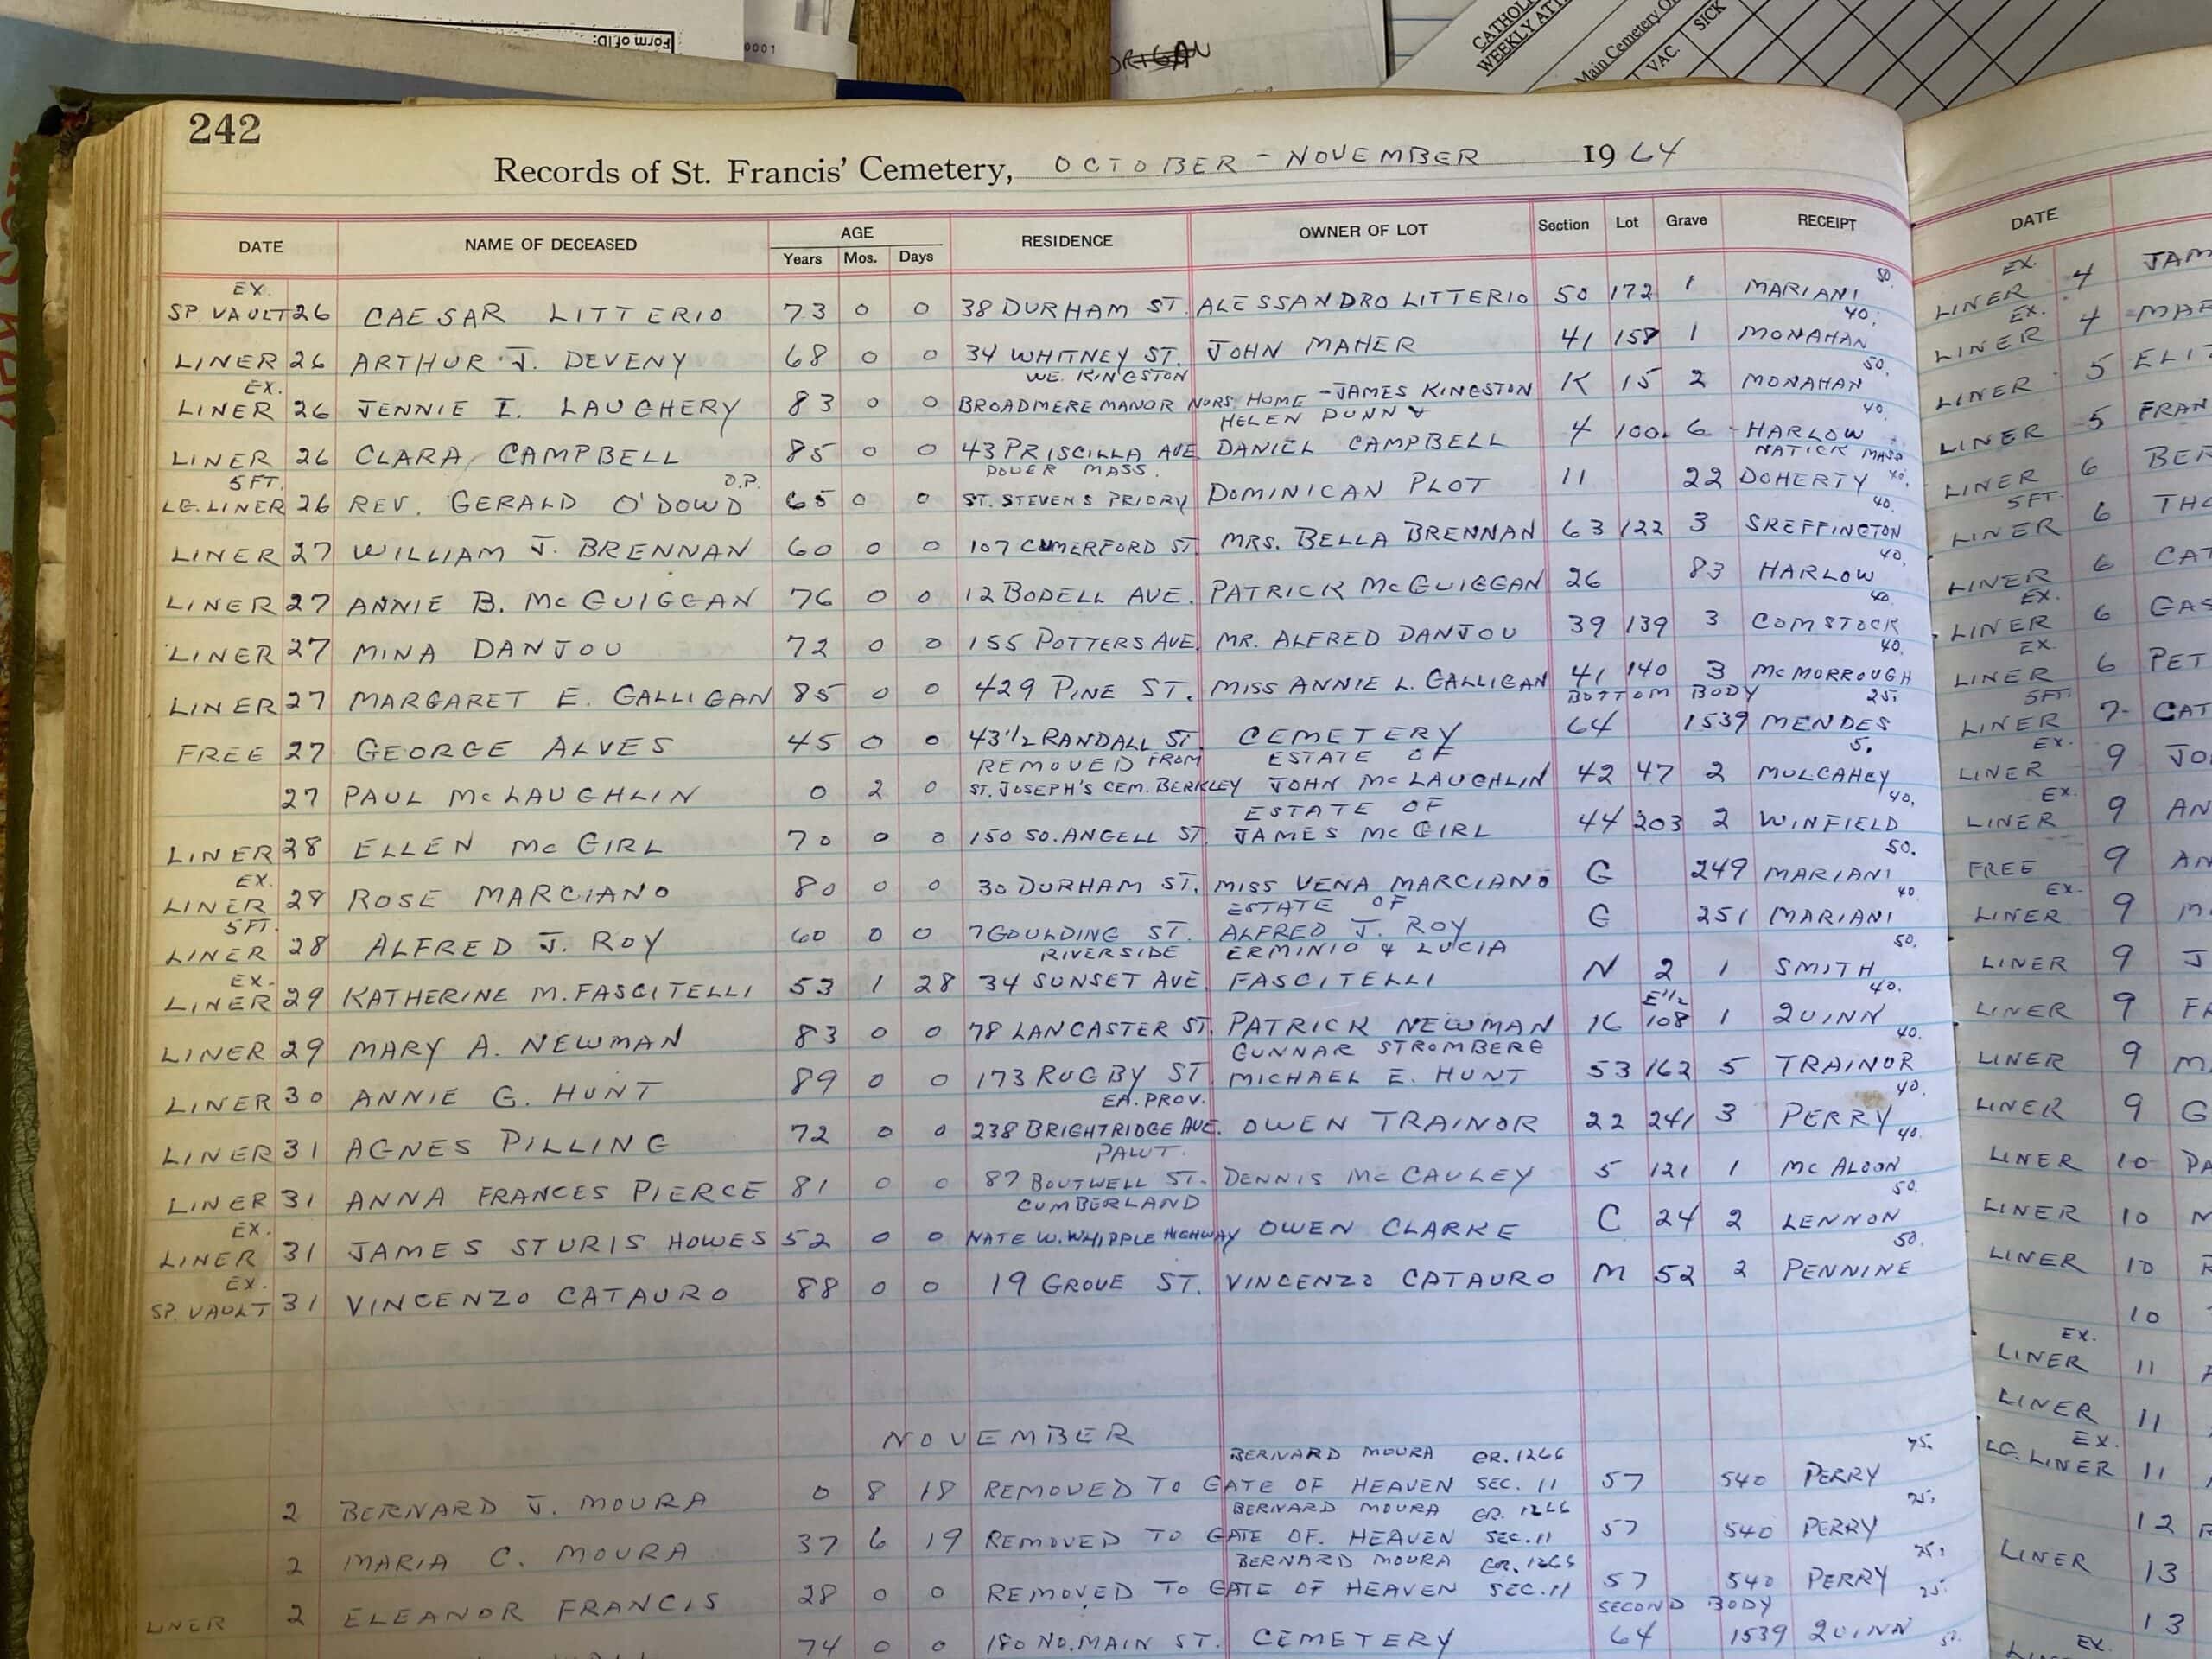 Form of ID:
0001
CATHOLIC
WEEKLY
Main Cemetery
VAC.
SICK
242
Records of St. Francis' Cemetery, OCTOBER - NOVEMBER 1964
DATE NAME OF DECEASED AGE RESIDENCE OWNER OF LOT Section Lot Grave RECEIPT
Years Mos. Days
EX. 50.
SP. VAULT 26 CAESAR LITTERIO 73 0 0 38 DURHAM ST. ALESSANDRO LITTERIO 50 172 1 MARIANI
40.
LINER 26 ARTHUR J. DEVENY 68 0 0 34 WHITNEY ST. JOHN MAHER 41 158 1 MONAHAN
EX. WE. KINGSTON 50.
LINER 26 JENNIE I. LAUGHERY 83 0 0 BROADMERE MANOR NURS. HOME - JAMES KINGSTON K 15 2 MONAHAN
HELEN DUNN & 40.
LINER 26 CLARA CAMPBELL 85 0 0 43 PRISCILLA AVE DANIEL CAMPBELL 4 100. 6 HARLOW
5FT. O.P. DOVER MASS. NATICK MASS
LG. LINER 26 REV. GERALD O'DOWD 65 0 0 ST. STEVENS PRIORY DOMINICAN PLOT 11 22 DOHERTY 40.
40.
LINER 27 WILLIAM J. BRENNAN 60 0 0 107 CUMERFORD ST MRS. BELLA BRENNAN 63 122 3 SKEFFINGTON
40.
LINER 27 ANNIE B. McGUIGGAN 76 0 0 12 BODELL AVE. PATRICK McGUIGGAN 26 83 HARLOW
40.
LINER 27 MINA DANJOU 72 0 0 155 POTTERS AVE. MR. ALFRED DANJOU 39 139 3 COMSTOCK
40.
LINER 27 MARGARET E. GALLIGAN 85 0 0 429 PINE ST. MISS ANNIE L. GALLIGAN 41 140 3 McMORROUGH
BOTTOM BODY 25.
FREE 27 GEORGE ALVES 45 0 0 43 1/2 RANDALL ST. CEMETERY 64 1539 MENDES
REMOVED FROM ESTATE OF 5.
27 PAUL McLAUGHLIN 0 2 0 ST. JOSEPH'S CEM. BERKLEY JOHN McLAUGHLIN 42 47 2 MULCAHEY
ESTATE OF 40.
LINER 28 ELLEN McGIRL 70 0 0 150 SO. ANGELL ST. JAMES McGIRL 44 203 2 WINFIELD
EX. 50.
LINER 28 ROSE MARCIANO 80 0 0 30 DURHAM ST. MISS VENA MARCIANO G 249 MARIANI
5FT. ESTATE OF 40
LINER 28 ALFRED J. ROY 60 0 0 7 GOULDING ST. ALFRED J. ROY G 251 MARIANI
EX. RIVERSIDE ERMINIO & LUCIA 50.
LINER 29 KATHERINE M. FASCITELLI 53 1 28 34 SUNSET AVE. FASCITELLI N 2 1 SMITH
E 1/2 40.
LINER 29 MARY A. NEWMAN 83 0 0 78 LANCASTER ST. PATRICK NEWMAN 16 108 1 QUINN
GUNNAR STROMBERG 40.
LINER 30 ANNIE G. HUNT 89 0 0 173 RUGBY ST. MICHAEL E. HUNT 53 162 5 TRAINOR
EA. PROV. 40.
LINER 31 AGNES PILLING 72 0 0 238 BRIGHTRIDGE AVE. OWEN TRAINOR 22 241 3 PERRY
PAWT. 40.
LINER 31 ANNA FRANCES PIERCE 81 0 0 87 BOUTWELL ST. DENNIS McCAULEY 5 121 1 McALOON
EX. CUMBERLAND 50.
LINER 31 JAMES STURIS HOWES 52 0 0 NATE W. WHIPPLE HIGHWAY OWEN CLARKE C 24 2 LENNON
EX. 50.
SP. VAULT 31 VINCENZO CATAURO 88 0 0 19 GROVE ST. VINCENZO CATAURO M 52 2 PENNINE
NOVEMBER
BERNARD MOURA GR. 1266 75.
2 BERNARD J. MOURA 0 8 18 REMOVED TO GATE OF HEAVEN SEC. 11 57 540 PERRY
BERNARD MOURA GR. 1266 75.
2 MARIA C. MOURA 37 6 19 REMOVED TO GATE OF HEAVEN SEC. 11 57 540 PERRY
BERNARD MOURA GR. 1265 75.
2 ELEANOR FRANCIS 28 0 0 REMOVED TO GATE OF HEAVEN SEC. 11 57 540 PERRY
SECOND BODY 25.
LINER 74 0 0 180 NO. MAIN ST. CEMETERY 64 1539 QUINN
50.
DATE
EX.
LINER 4 JAM
EX.
LINER 4 MAR
LINER 5 ELIZ
LINER 5 FRAN
LINER 6 BER
5FT.
LINER 6 THO
LINER 6 CAT
EX.
LINER 6 GAS
EX.
LINER 6 PET
5FT.
LINER 7 CAT
EX.
LINER 9 JO
EX.
LINER 9 AN
FREE 9 AN
EX.
LINER 9 M
LINER 9 J
LINER 9 FR
LINER 9 M
LINER 9 G
LINER 10 PA
LINER 10
LINER 10
10
EX.
LINER 11
LINER 11
EX.
LG. LINER 11
12
LINER 13
13
EX.